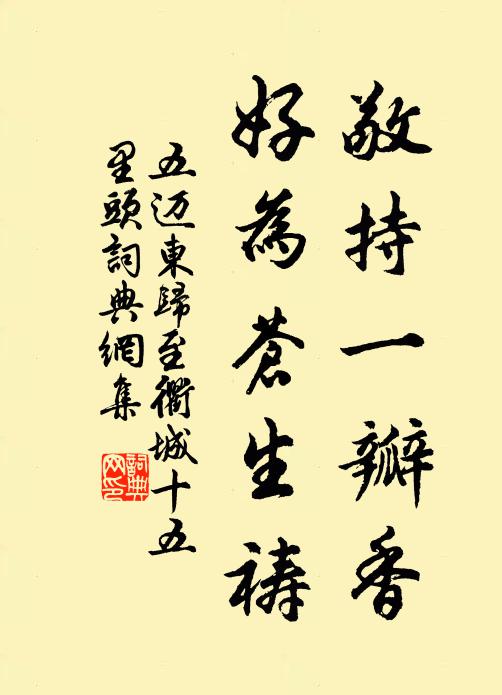 敬持一瓣香
好為蒼生禱
五迈東歸至衢城十五
里頭詞典網集
詞典
網印